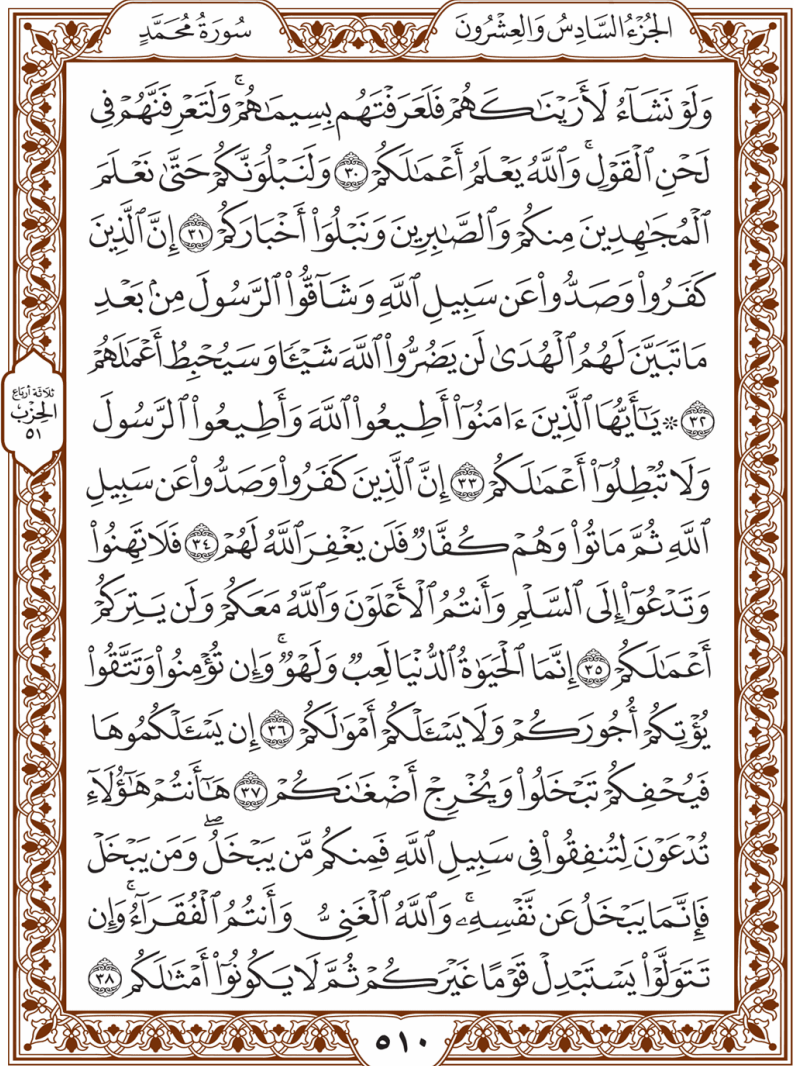 الجُزْءُ السَّادِسُ وَالعِشْرُونَ
سُورَةُ مُحَمَّدٍ
وَلَوْ نَشَآءُ لَأَرَيْنَٰكَهُمْ فَلَعَرَفْتَهُم بِسِيمَٰهُمْۚ وَلَتَعْرِفَنَّهُمْ فِي
لَحْنِ ٱلْقَوْلِۚ وَٱللَّهُ يَعْلَمُ أَعْمَٰلَكُمْ ٣٠ وَلَنَبْلُوَنَّكُمْ حَتَّىٰ نَعْلَمَ
ٱلْمُجَٰهِدِينَ مِنكُمْ وَٱلصَّٰبِرِينَ وَنَبْلُوَا۟ أَخْبَارَكُمْ ٣١ إِنَّ ٱلَّذِينَ
كَفَرُوا۟ وَصَدُّوا۟ عَن سَبِيلِ ٱللَّهِ وَشَآقُّوا۟ ٱلرَّسُولَ مِنۢ بَعْدِ
مَا تَبَيَّنَ لَهُمُ ٱلْهُدَىٰ لَن يَضُرُّوا۟ ٱللَّهَ شَيْـًٔا وَسَيُحْبِطُ أَعْمَٰلَهُمْ
٣٢ ۞ يَٰٓأَيُّهَا ٱلَّذِينَ ءَامَنُوٓا۟ أَطِيعُوا۟ ٱللَّهَ وَأَطِيعُوا۟ ٱلرَّسُولَ
وَلَا تُبْطِلُوٓا۟ أَعْمَٰلَكُمْ ٣٣ إِنَّ ٱلَّذِينَ كَفَرُوا۟ وَصَدُّوا۟ عَن سَبِيلِ
ٱللَّهِ ثُمَّ مَاتُوا۟ وَهُمْ كُفَّارٌ فَلَن يَغْفِرَ ٱللَّهُ لَهُمْ ٣٤ فَلَا تَهِنُوا۟
وَتَدْعُوٓا۟ إِلَى ٱلسَّلْمِ وَأَنتُمُ ٱلْأَعْلَوْنَ وَٱللَّهُ مَعَكُمْ وَلَن يَتِرَكُمْ
أَعْمَٰلَكُمْ ٣٥ إِنَّمَا ٱلْحَيَوٰةُ ٱلدُّنْيَا لَعِبٌ وَلَهْوٌۚ وَإِن تُؤْمِنُوا۟ وَتَتَّقُوا۟
يُؤْتِكُمْ أُجُورَكُمْ وَلَا يَسْـَٔلْكُمْ أَمْوَٰلَكُمْ ٣٦ إِن يَسْـَٔلْكُمُوهَا
فَيُحْفِكُمْ تَبْخَلُوا۟ وَيُخْرِجْ أَضْغَٰنَكُمْ ٣٧ هَٰٓأَنتُمْ هَٰٓؤُلَآءِ
تُدْعَوْنَ لِتُنفِقُوا۟ فِي سَبِيلِ ٱللَّهِ فَمِنكُم مَّن يَبْخَلُۖ وَمَن يَبْخَلْ
فَإِنَّمَا يَبْخَلُ عَن نَّفْسِهِۦۚ وَٱللَّهُ ٱلْغَنِيُّ وَأَنتُمُ ٱلْفُقَرَآءُۚ وَإِن
تَتَوَلَّوْا۟ يَسْتَبْدِلْ قَوْمًا غَيْرَكُمْ ثُمَّ لَا يَكُونُوٓا۟ أَمْثَٰلَكُم ٣٨
ثلاثة أرباع
الحِزْب
٥١
٥١٠